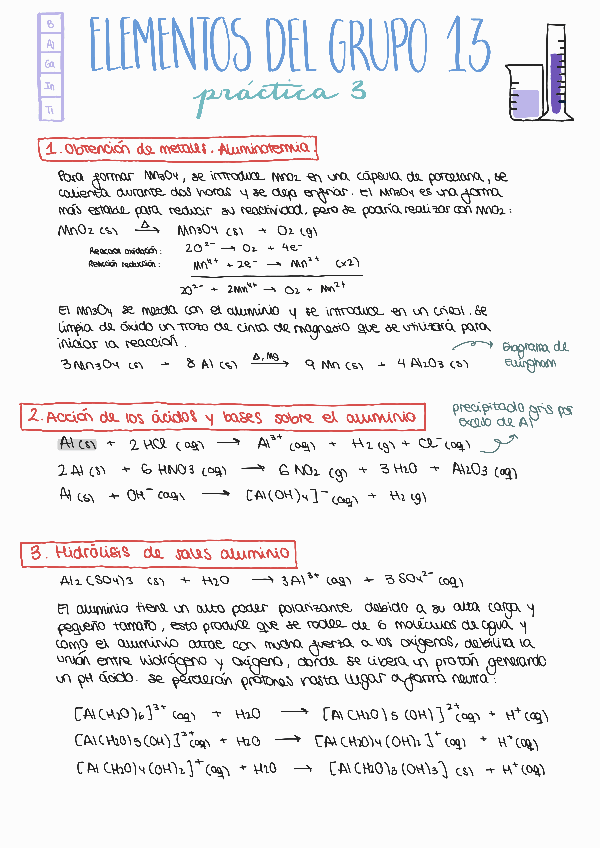 B
Al
Ga
In
Tl
ELEMENTOS DEL GRUPO 13
práctica 3
1. Obtención de metales. Aluminotermia
Para formar Mn3O4, se introduce MnO2 en una cápsula de porcelana, se
calienta durante dos horas y se deja enfriar. El Mn3O4 es una forma
más estable para reducir su reactividad, pero se podría realizar con MnO2:
MnO2 (s) —Δ→ Mn3O4 (s) + O2 (g)
Reacción oxidación: 2O²⁻ → O2 + 4e⁻
Reacción reducción: Mn⁴⁺ + 2e⁻ → Mn²⁺ (x2)
2O²⁻ + 2Mn⁴⁺ → O2 + Mn²⁺
El Mn3O4 se mezcla con el aluminio y se introduce en un crisol. Se
limpia de óxido un trozo de cinta de magnesio que se utilizará para
iniciar la reacción.
Diagrama de
Ellingham
3Mn3O4 (s) + 8Al (s) —Δ, Mg→ 9Mn (s) + 4Al2O3 (s)
2. Acción de los ácidos y bases sobre el aluminio
precipitado gris por
exceso de Al
Al (s) + 2HCl (aq) → Al³⁺ (aq) + H2 (g) + Cl⁻ (aq)
2Al (s) + 6HNO3 (aq) → 6NO2 (g) + 3H2O + Al2O3 (aq)
Al (s) + OH⁻ (aq) → [Al(OH)4]⁻ (aq) + H2 (g)
3. Hidrólisis de sales aluminio
Al2(SO4)3 (s) + H2O → 3Al³⁺ (aq) + 3SO4²⁻ (aq)
El aluminio tiene un alto poder polarizante debido a su alta carga y
pequeño tamaño, esto produce que se rodee de 6 moléculas de agua y
como el aluminio atrae con mucha fuerza a los oxígenos, debilita la
unión entre hidrógeno y oxígeno, donde se libera un protón generando
un pH ácido. Se perderán protones hasta llegar a forma neutra:
[Al(H2O)6]³⁺ (aq) + H2O → [Al(H2O)5(OH)]²⁺ (aq) + H⁺ (aq)
[Al(H2O)5(OH)]²⁺ (aq) + H2O → [Al(H2O)4(OH)2]⁺ (aq) + H⁺ (aq)
[Al(H2O)4(OH)2]⁺ (aq) + H2O → [Al(H2O)3(OH)3] (s) + H⁺ (aq)